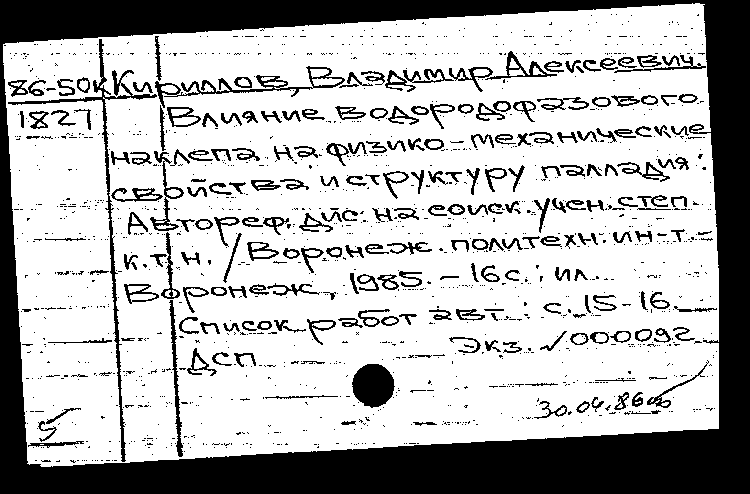 86-50к Кириллов, Владимир Алексеевич.
1827 Влияние водородофазового
наклепа на физико-механические
свойства и структуру палладия:
Автореф. дис. на соиск. учен. степ.
к.т.н. / Воронеж. политехн. ин-т. -
Воронеж, 1985. - 16 с.; ил.
Список работ авт.: с. 15-16.
ДСП Экз. √000092
5 30.04.86